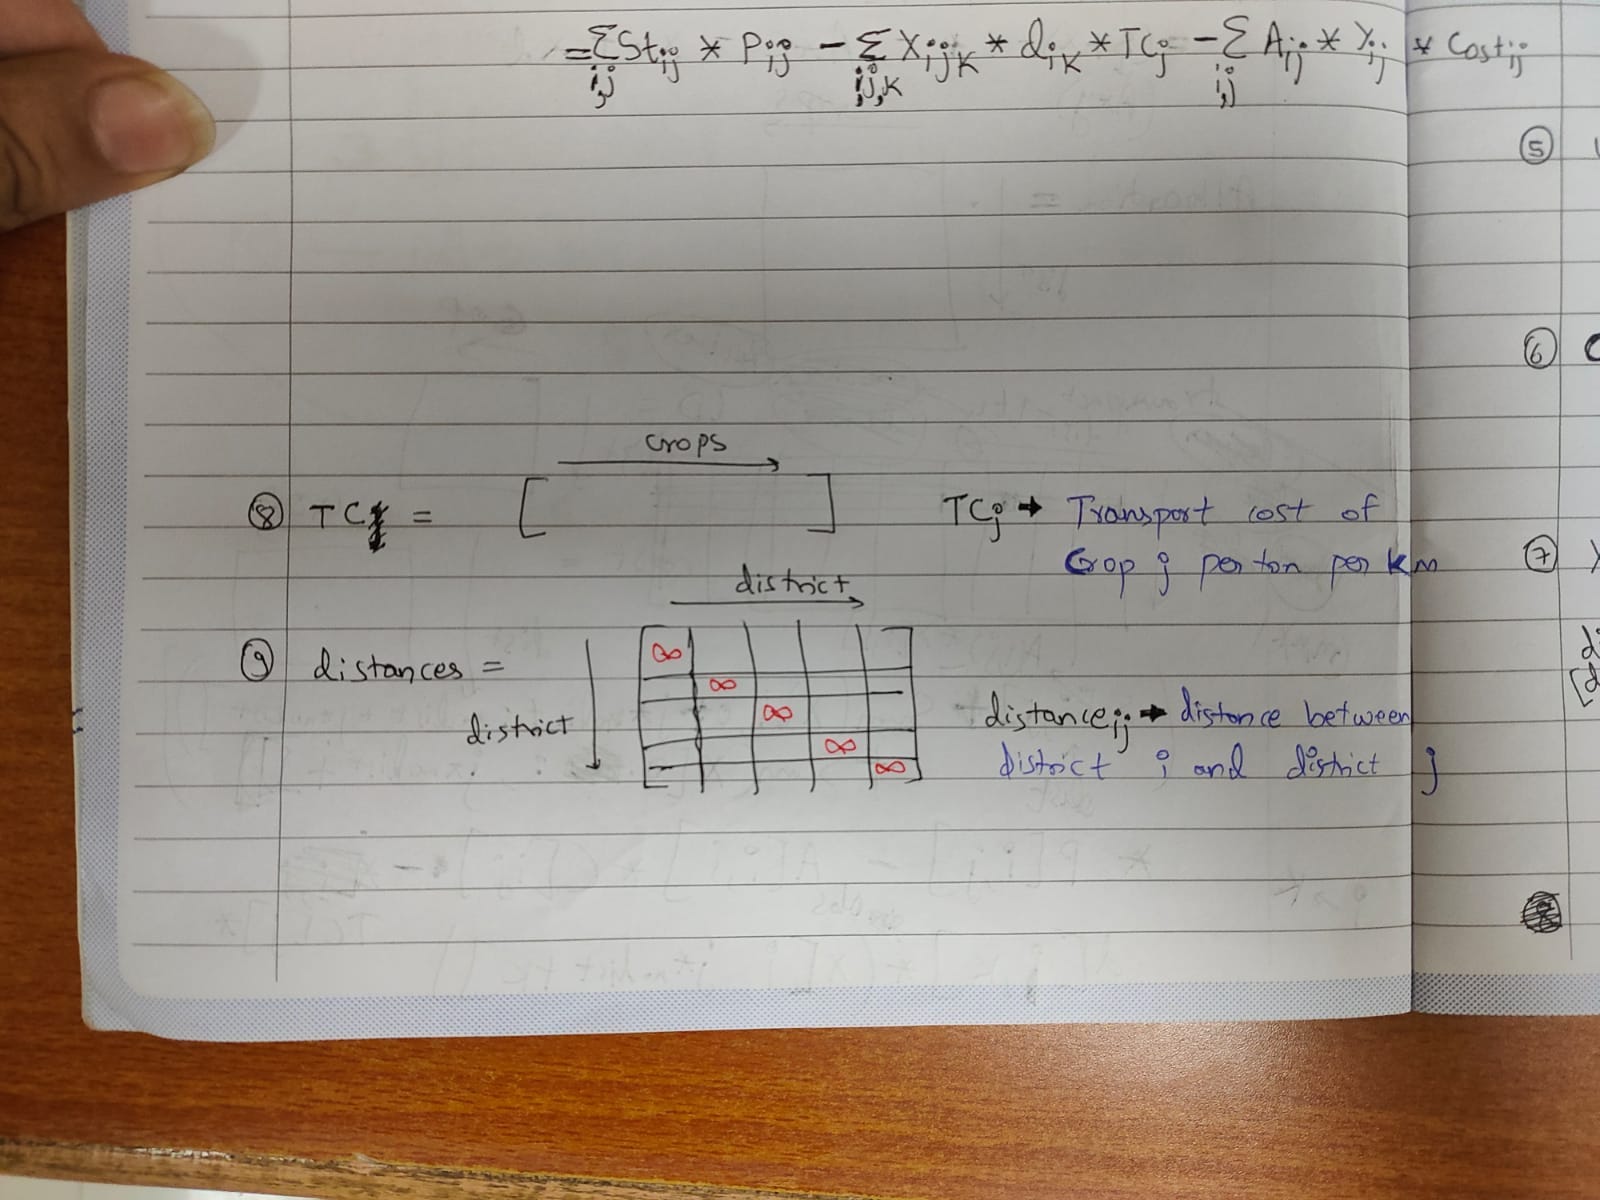 = Σ St_ij * P_ij - Σ X_ijk * d_ik * TC_j - Σ A_ij * Y_ij * Cost_ij
i,j i,j,k i,j
⑤
⑥
crops
⑧ TC = [ ] TC_j → Transport cost of
Crop j per ton per km
⑦
district
⑨ distances =
∞
∞
district ∞ distance_ij → distance between
∞ district i and district j
∞